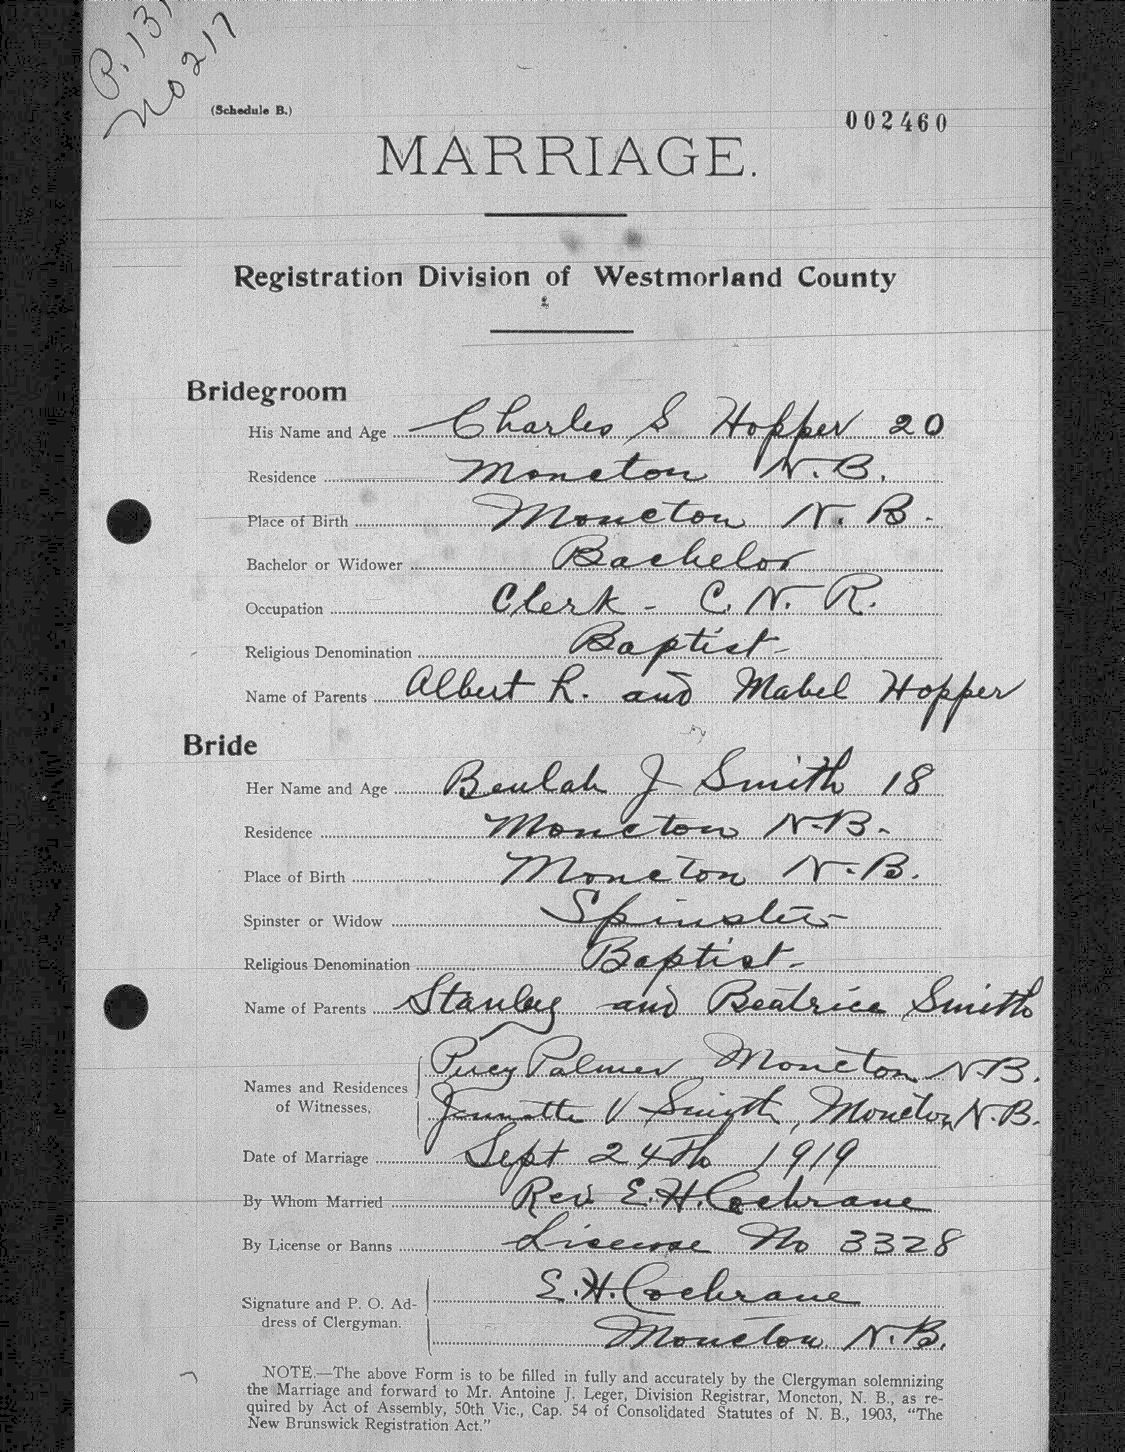 P. 131
No 217
(Schedule B.)
002460
MARRIAGE.
Registration Division of Westmorland County
Bridegroom
His Name and Age Charles S Hopper 20
Residence Moncton N.B.
Place of Birth Moncton N.B.
Bachelor or Widower Bachelor
Occupation Clerk - C.N.R.
Religious Denomination Baptist
Name of Parents Albert L. and Mabel Hopper
Bride
Her Name and Age Beulah J Smith 18
Residence Moncton N.B.
Place of Birth Moncton N.B.
Spinster or Widow Spinster
Religious Denomination Baptist
Name of Parents Stanley and Beatrice Smith
Names and Residences of Witnesses, Percy Palmer Moncton N.B.
V Smyth, Moncton N.B.
Date of Marriage Sept 24th 1919
By Whom Married Rev. E.H. Cochrane
By License or Banns License No 3328
Signature and P. O. Ad- E.H. Cochrane
dress of Clergyman. Moncton N.B.
NOTE.—The above Form is to be filled in fully and accurately by the Clergyman solemnizing
the Marriage and forward to Mr. Antoine J. Leger, Division Registrar, Moncton, N. B., as re-
quired by Act of Assembly, 50th Vic., Cap. 54 of Consolidated Statutes of N. B., 1903, "The
New Brunswick Registration Act."